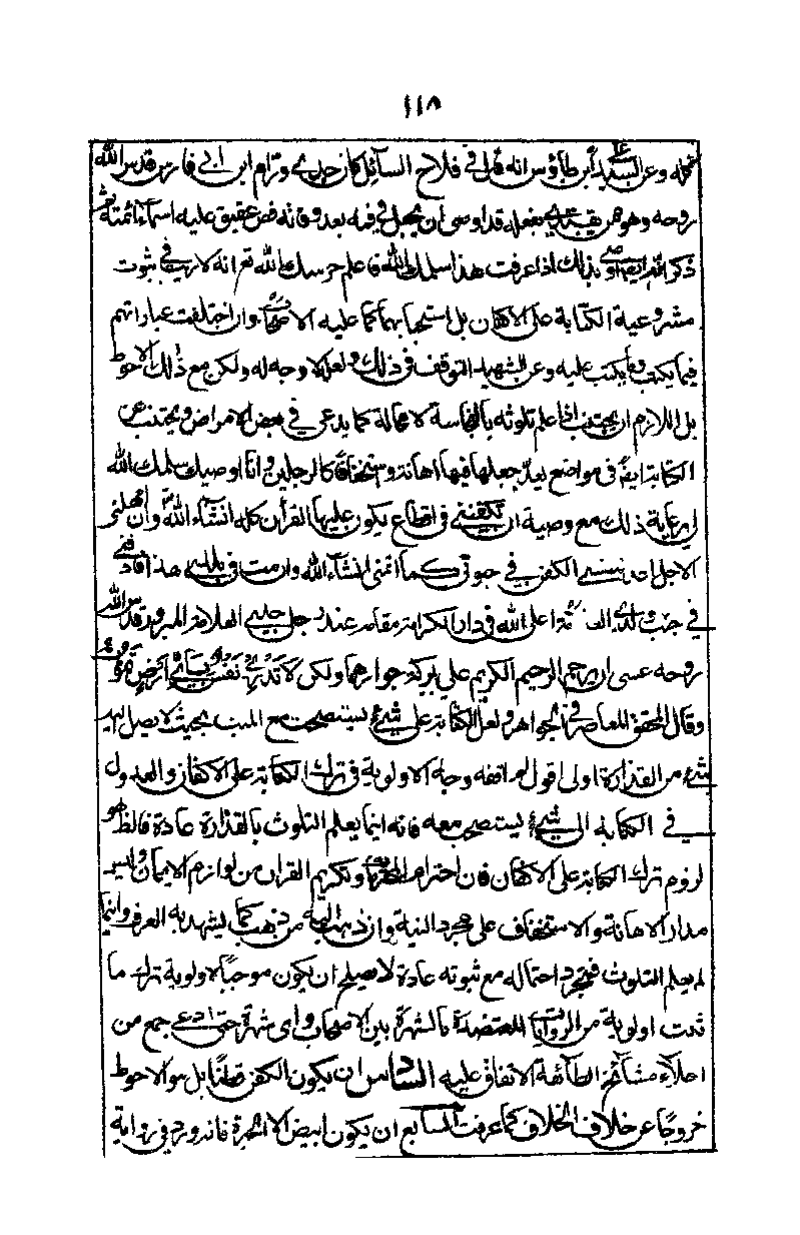 ١١٨
وعن السيد ابن طاوس انه قال في فلاح السائل كان جدي ورّام ابن ابي فارس قدس الله
روحه وهو ممن يقتدى بفعله قد اوصى ان يجعل في فمه بعد وفاته فص عقيق عليه اسماء ائمته
ذكر بذلك اذا عرفت هذا فاعلم حرسك الله تعم انه لا ريب في ثبوت
مشروعية الكتابة على الاكفان بل استحبابها كما عليه الاصحاب وان اختلفت عباراتهم
فيما يكتب وما يكتب عليه وعن الشهيد التوقف في ذلك ولعله لا وجه له ولكن مع ذلك الاحوط
بل اللازم ان يجتنب اذا علم تلوثه بالنجاسة لا محالة كما يدعى في بعض الامراض ويجتنب عن
الكتابة ايضا في مواضع يعد جعلها فيها اهانة واستخفافا كالرجلين وانا اوصيك سلمك الله
برعاية ذلك مع وصية ان تكفنني في اقطاع يكون عليها القرآن كله انشاء الله وان
الاجل الكفن في انشاء الله وان مت في هذا
في جنب اعلى الله في دار الكرامة مقامه عند رجل العلامة المبرور قدس الله
روحه عسى ان يرحم الرحيم الكريم علي ببركة جوارهما ولكن لا تدري نفس باي ارض تموت
وقال المحقق المعاصر في الجواهر ولعل الكتابة على شيء يستصحب مع الميت بحيث لا يصل اليه
شيء من القذارة اولى اقول لم افقه وجه الاولوية في ترك الكتابة على الاكفان والعدول
في الكتابة الى شيء يستصحب معه فانه انما يعلم التلوث بالقذارة عادة فالظ هو
لزوم ترك الكتابة على الاكفان فان احترام وتكريم القرآن من لوازم الايمان وليس
مدار الاهانة والاستخفاف على مجرد النية وان ذهب اليه من ذهب كما يشهد به العرف وانما
لم يعلم التلوث فمجرد احتماله مع ثبوته عادة لا يصلح ان يكون موجبا لاولوية ترك ما
ثبت اولوية من الروايات المعتضدة بالشهرة بين الاصحاب واى شهرة حتى ادعى جمع من
اجلاء مشائخ الطائفة الاتفاق عليه السادس ان يكون الكفن قطنا بل هو الاحوط
خروجا عن خلاف الخلاف كما عرفت السابع ان يكون ابيض الا الحبرة فانه ورد في رواية